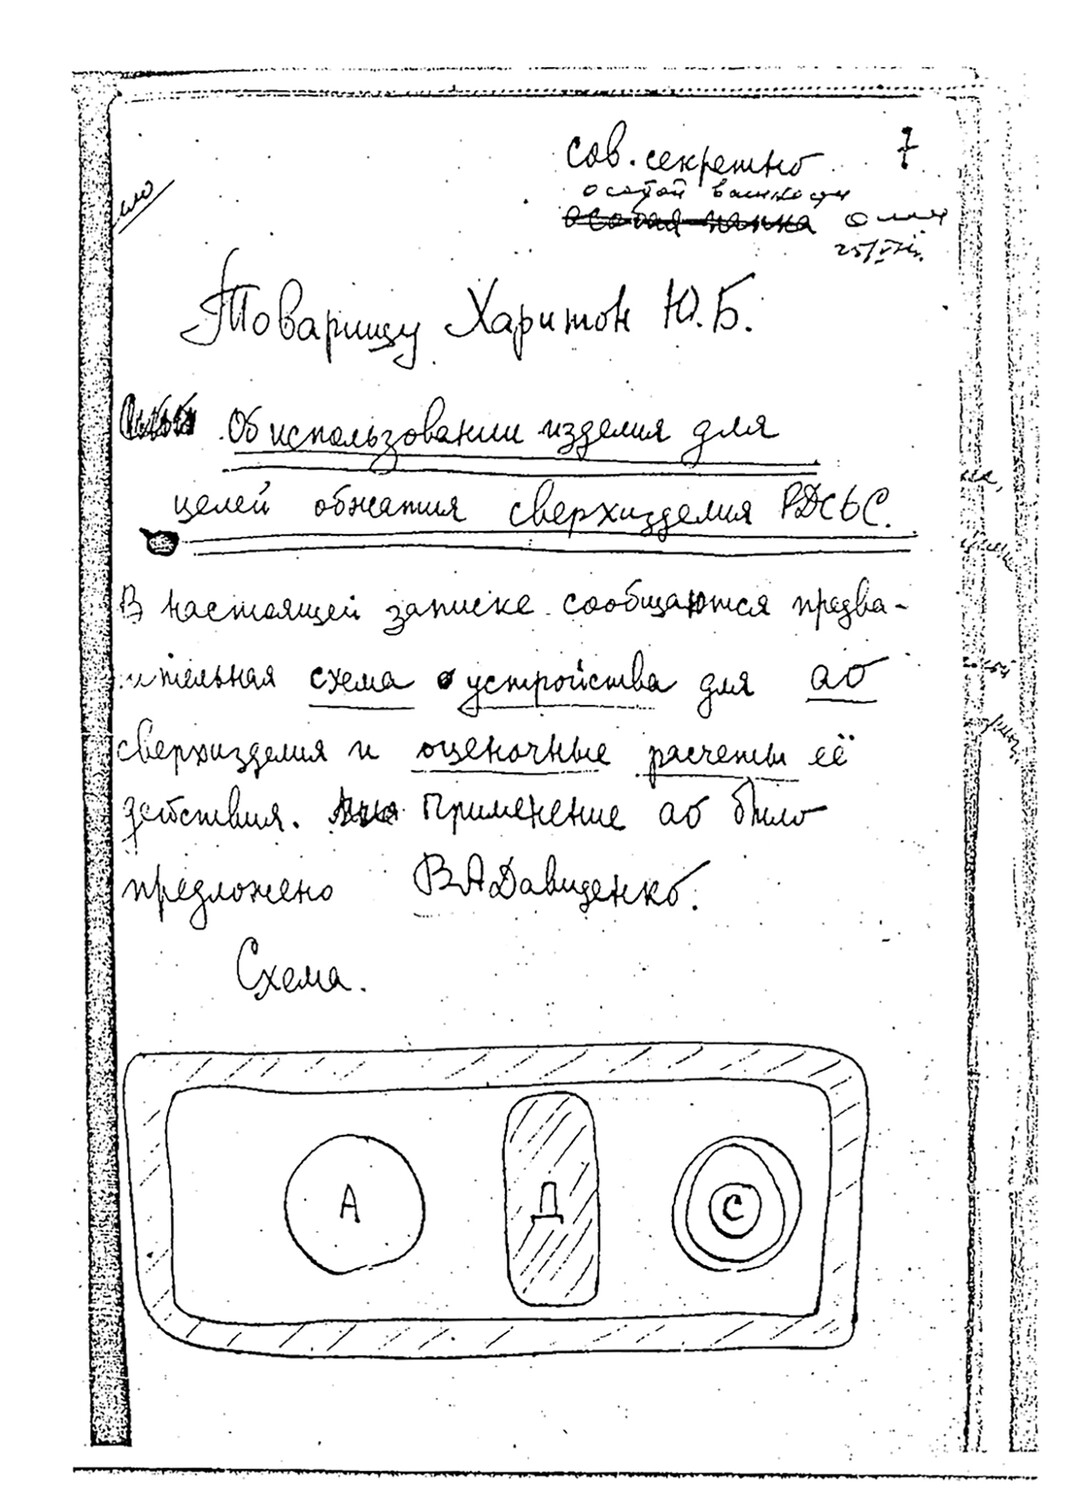 7
сов. секретно
особой важности
особая папка
Товарищу Харитон Ю.Б.
Об использовании изделия для
целей обжатия сверхизделия РДС6С.
В настоящей записке сообщаются предва-
ительная схема устройства для АО
сверхизделия и оценочные расчеты её
действия. Применение АО было
предложено В А Давиденко.
Схема.
А
Д
С